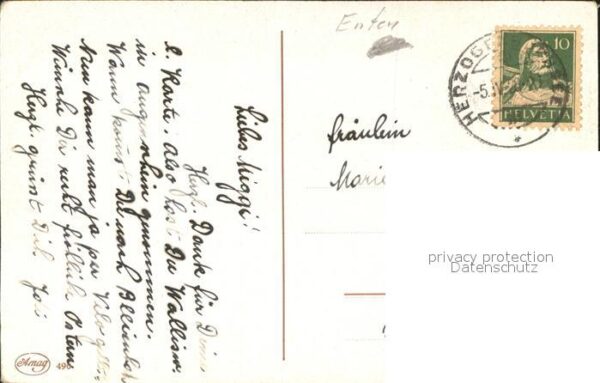 Enten
HERZOGE
10
HELVETIA
Liebes Miggi!
Herzl. Dank für Deine
l. Karte. Also hast Du Wallis
in augenschein genommen.
Wann kommst Du nach
Nun kann man ja per Velo
Wünsche Dir recht fröhlich Ostern
Herzl. grüsst Dich
Fräulein
Marie
privacy protection
Datenschutz
Amag